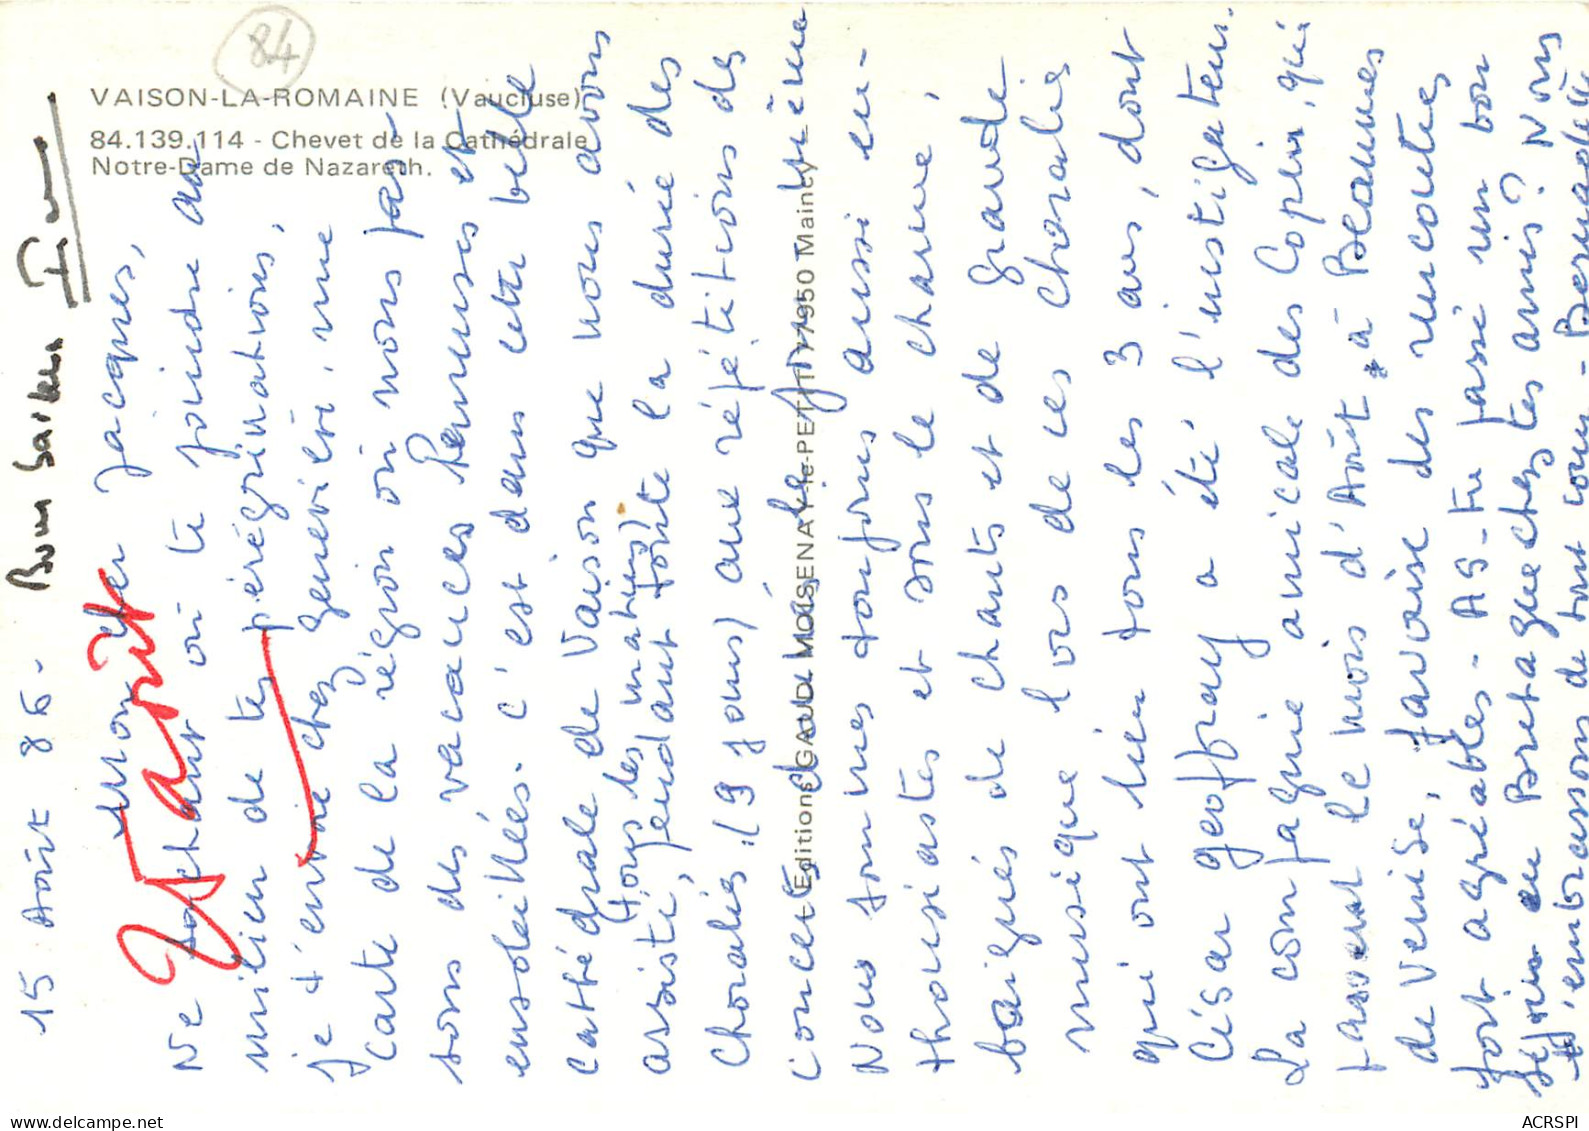 84
VAISON-LA-ROMAINE (Vaucluse)
84.139.114 - Chevet de la Cathédrale
Notre-Dame de Nazareth.
Editions GAUD MOISENAY-le-PETIT 77950 Maincy
15 Août 86-
Mon cher Jacques,
Ne sachant où te joindre au
milieu de tes pérégrinations,
je t'envoie chez Geneviève, une
carte de la région où nous pas-
sons des vacances heureuses et
ensoleillées. C'est dans cette belle
cathédrale de Vaison que nous avons
(tous les matins)
assisté, pendant toute la durée des
Choralies, (9 jours) aux répétitions des
concerts
Nous sommes toujours aussi en-
thousiastes et sous le charme,
baignés de chants et de grande
musique lors de ces Choralies
qui ont lieu tous les 3 ans, dont
César Geoffray a été l'instigateur.
La compagnie amicale des Coplin, qui
passent le mois d'Août à Beaumes
de Venise, favorise des rencontres
fort agréables - As-tu passé un bon
séjour en Bretagne chez tes amis? Nous
t'embrassons de tout cœur - Bernadette
ACRSPI